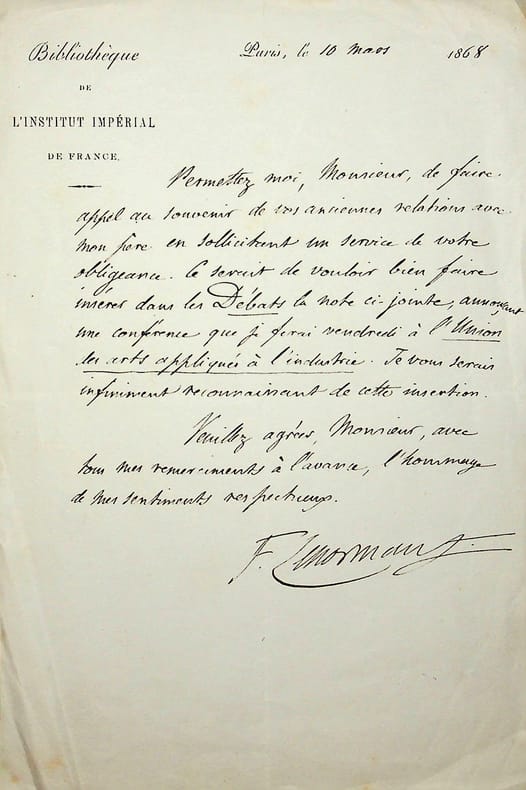 Bibliothèque
DE
L'INSTITUT IMPÉRIAL
DE FRANCE.
Paris, le 10 mars 1868
Permettez moi, Monsieur, de faire
appel au souvenir de vos anciennes relations avec
mon père en sollicitant un service de votre
obligeance. Ce serait de vouloir bien faire
insérer dans les Débats la note ci-jointe, annonçant
une conférence que je ferai vendredi à l'Union
des arts appliqués à l'industrie. Je vous serais
infiniment reconnaissant de cette insertion.
Veuillez agréer, Monsieur, avec
tous mes remerciments à l'avance, l'hommage
de mes sentiments respectueux.
F. Lenormant.